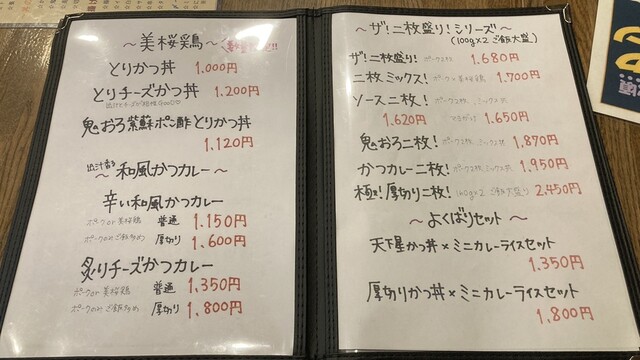 ～美桜鶏～
とりかつ丼 1.000円
とりチーズかつ丼 1.200円
鬼おろ紫蘇ポン酢とりかつ丼
1.120円
出汁香る 和風かつカレー～
辛い和風かつカレー
ポークor美桜鶏 普通 1.150円
ポークのみ ご飯多め 厚切り 1,600円
炙りチーズかつカレー
ポークor美桜鶏 普通 1,350円
ポークのみ ご飯多め 厚切り 1,800円
～ザ!二枚盛り!シリーズ～
(100g×2 ご飯大盛)
ザ!二枚盛り! ポーク2枚 1.680円
二枚ミックス! ポーク×美桜鶏 1.700円
ソース二枚! ポーク2枚 ミックス
1.620円 1.650円
鬼おろ二枚! ポーク2枚 ミックス 1,870円
かつカレー二枚! ポーク2枚 ミックス 1,950円
極!厚切り二枚! 160g×2 ご飯大盛り 2,450円
～よくばりセット～
天下星かつ丼×ミニカレーライスセット
1.350円
厚切りかつ丼×ミニカレーライスセット
1,800円